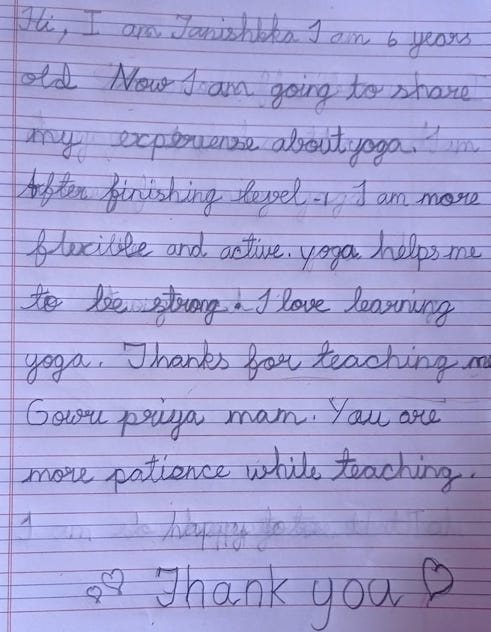 Hi, I am Tanishkka I am 6 years
old Now I am going to share
my experiense about yoga.
After finishing level -1, I am more
flexible and active. yoga helps me
to be strong. I love learning
yoga. Thanks for teaching me
Gowri priya mam. You are
more patience while teaching.
I am so happy to
Thank you